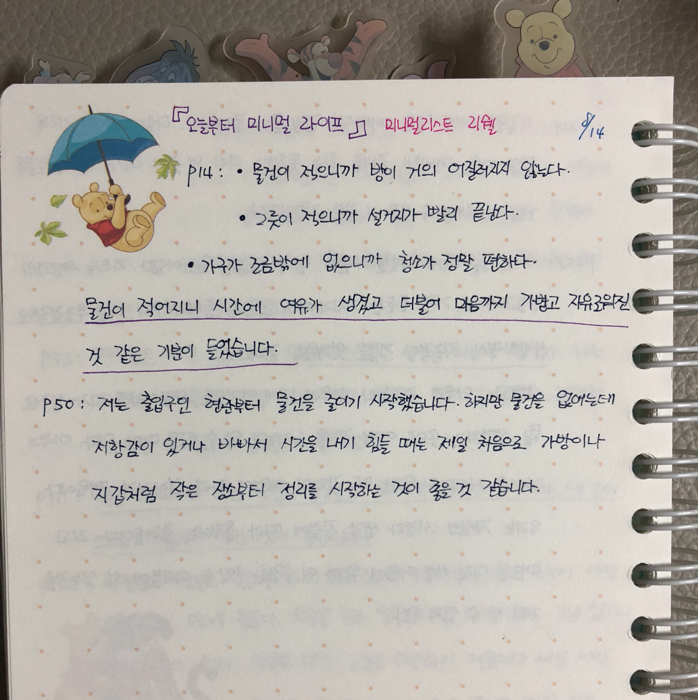 『오늘부터 미니멀 라이프』 미니멀리스트 리월 8/14
p14 : • 물건이 적으니까 방이 거의 어질러지지 않는다.
• 그릇이 적으니까 설거지가 빨리 끝난다.
• 가구가 조금밖에 없으니까 청소가 정말 편하다.
물건이 적어지니 시간에 여유가 생겼고 더불어 마음까지 가볍고 자유로워진
것 같은 기분이 들었습니다.
p50 : 저는 출입구인 현관부터 물건을 줄이기 시작했습니다. 하지만 물건을 없애는데
저항감이 있거나 바빠서 시간을 내기 힘들 때는 제일 처음으로 가방이나
지갑처럼 작은 장소부터 정리를 시작하는 것이 좋을 것 같습니다.